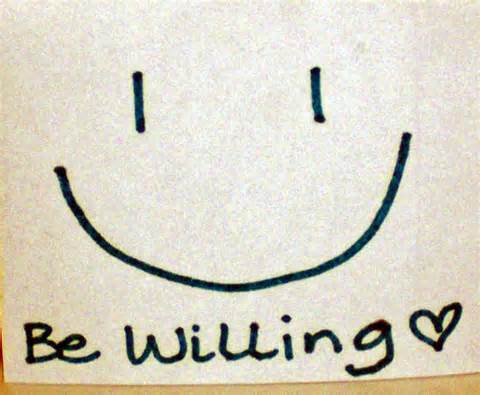 Be Willing ♡